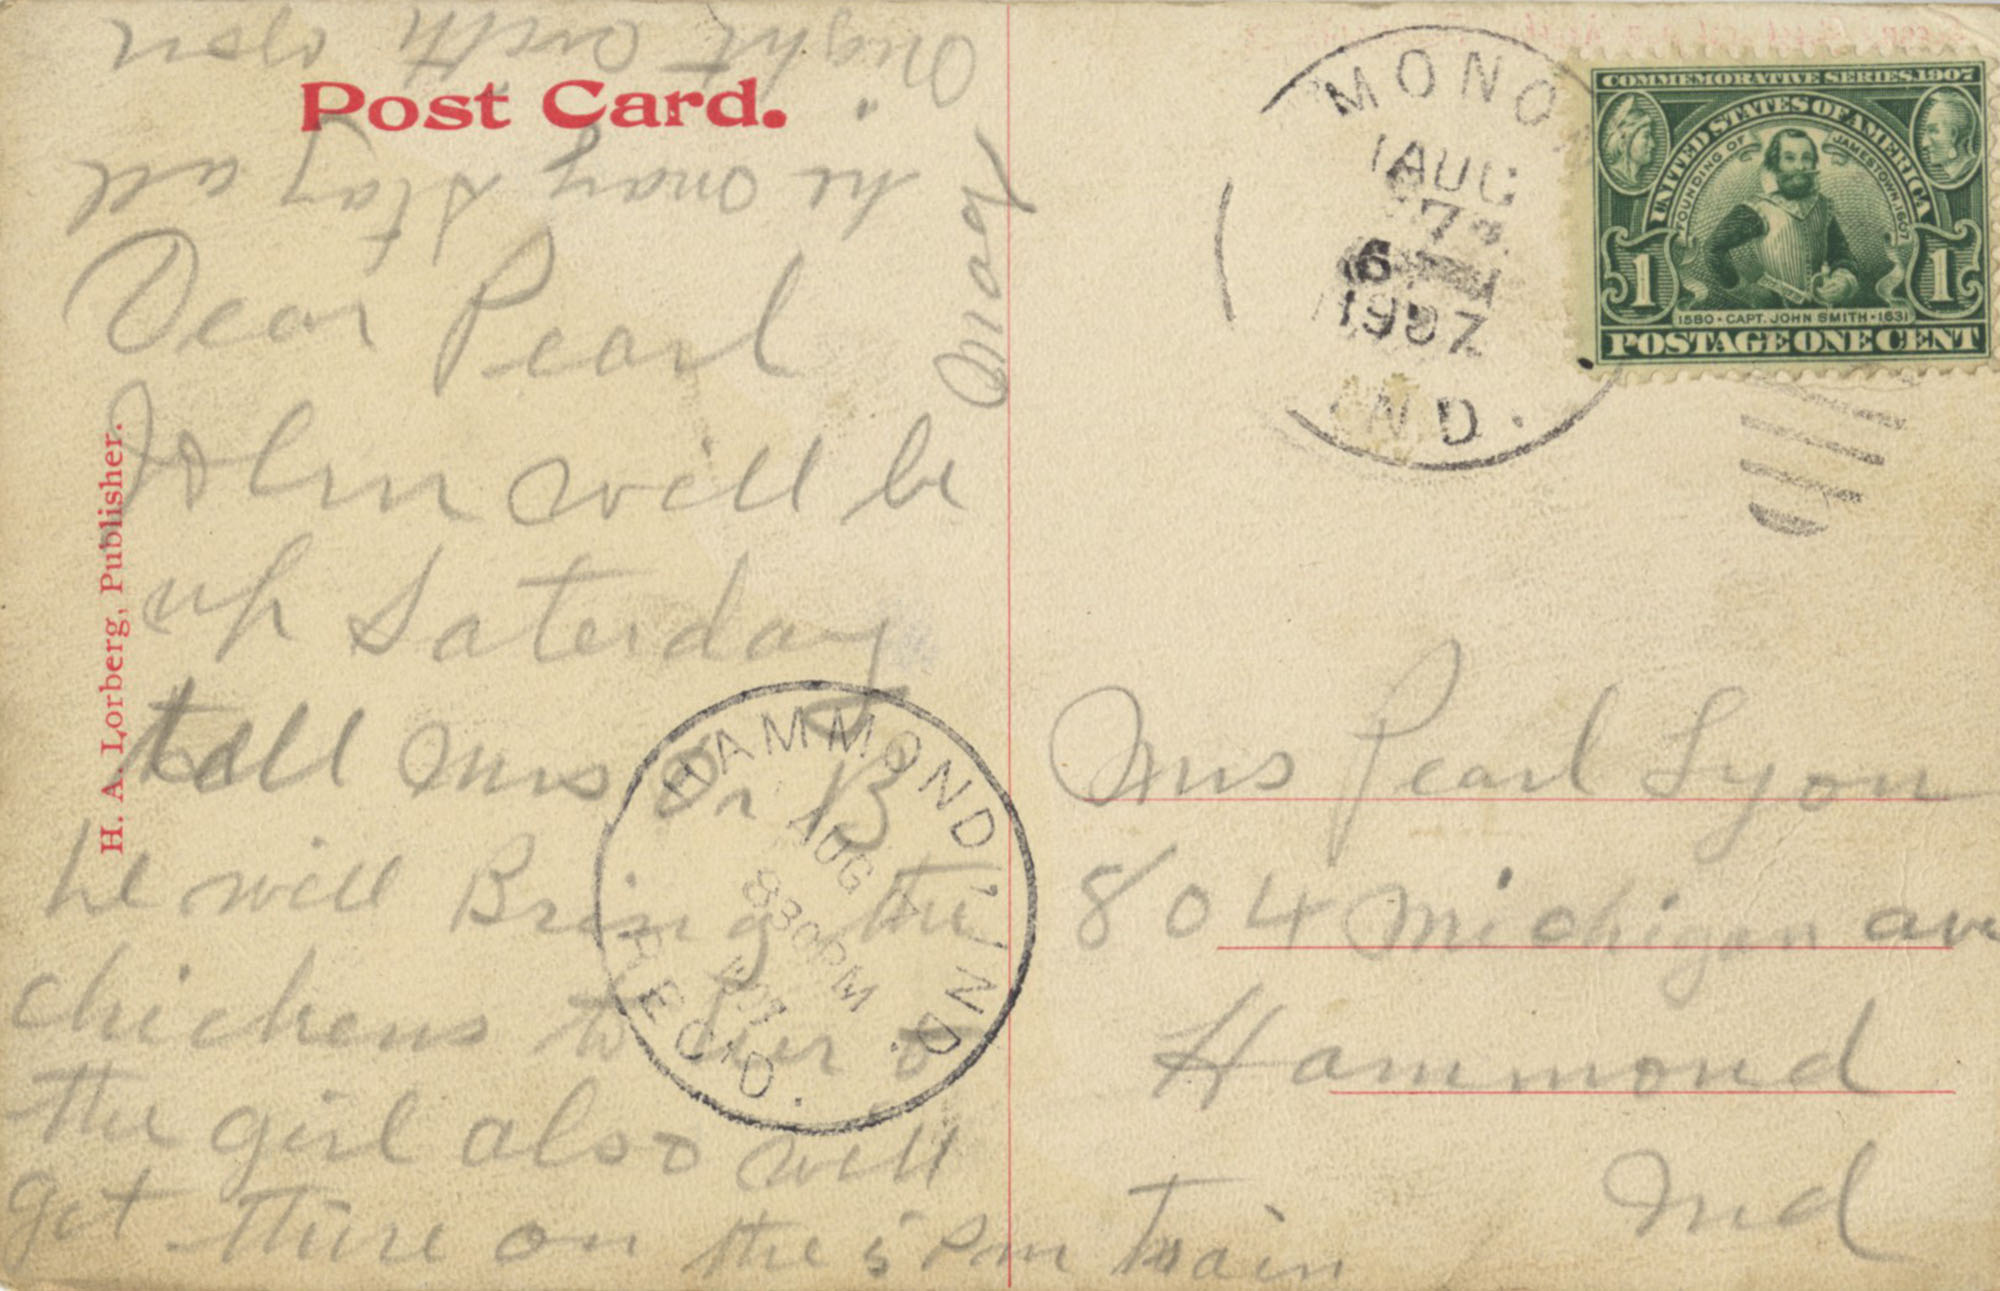 Post Card.
H. A. Lorberg, Publisher.
Dear Pearl
John will be
up Saterday
tell Mrs Dr B
he will Bring the
chickens to her &
the girl also will
get there on the 5 Pm train
he may stay all
night with you
Mrs Pearl Lyon
804 Michigan ave
Hammond
Ind
MONON
IND.
AUG
7
6
1907
HAMMOND, IND.
AUG 7
830PM
1907
REC'D.
COMMEMORATIVE SERIES, 1907
UNITED STATES OF AMERICA
FOUNDING OF JAMESTOWN, 1607
1 1
1580 · CAPT. JOHN SMITH · 1631
POSTAGE ONE CENT